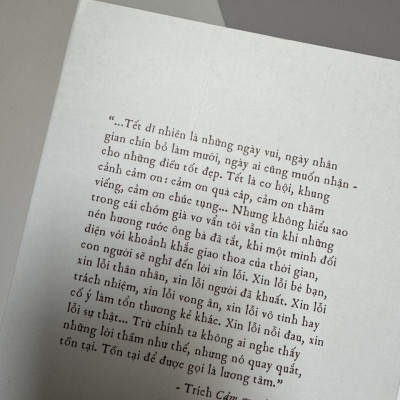 “...Tết dĩ nhiên là những ngày vui, ngày nhân
gian chín bỏ làm mười, ngày ai cũng muốn nhận -
cho những điều tốt đẹp. Tết là cơ hội, khung
cảnh cảm ơn: cảm ơn quà cáp, cảm ơn thăm
viếng, cảm ơn chúc tụng... Nhưng không hiểu sao
trong cái chóm già vơ vẩn tôi vẫn tin khi những
nén hương rước ông bà đã tắt, khi một mình đối
diện với khoảnh khắc giao thoa của thời gian,
con người sẽ nghĩ đến lời xin lỗi. Xin lỗi bè bạn,
xin lỗi thân nhân, xin lỗi người đã khuất. Xin lỗi
trách nhiệm, xin lỗi vong ân, xin lỗi vô tình hay
cố ý làm tổn thương kẻ khác. Xin lỗi nỗi đau, xin
lỗi sự thật... Trừ chính ta không ai nghe thấy
những lời thầm như thế, nhưng nó quay quắt,
tồn tại. Tồn tại để được gọi là lương tâm.”
- Trích Cảm